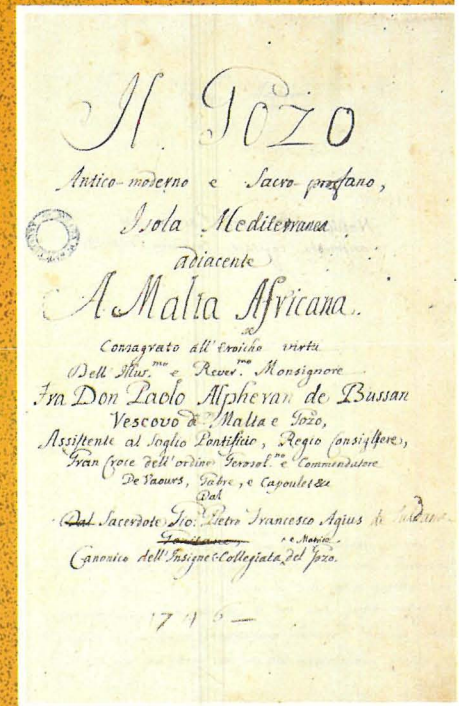 Il Gozo
Antico-moderno e Sacro-profano,
Isola Mediterranea
adiacente
A Malta Africana.
Consagrato all'Eroiche virtù
Dell'Illus.mo e Rever.mo Monsignore
Fra Don Paolo Alpheran de Bussan
Vescovo di Malta e Gozo,
Assistente al Soglio Pontificio, Regio Consigliere,
Gran Croce dell'ordine Gerosol.no e Commendatore
De Vaours, Gabre, e Capoulet &a
Dal
Dal Sacerdote Gio: Pietro Francesco Agius de
e Matrice
Canonico dell'Insigne Collegiata del Gozo.
1746